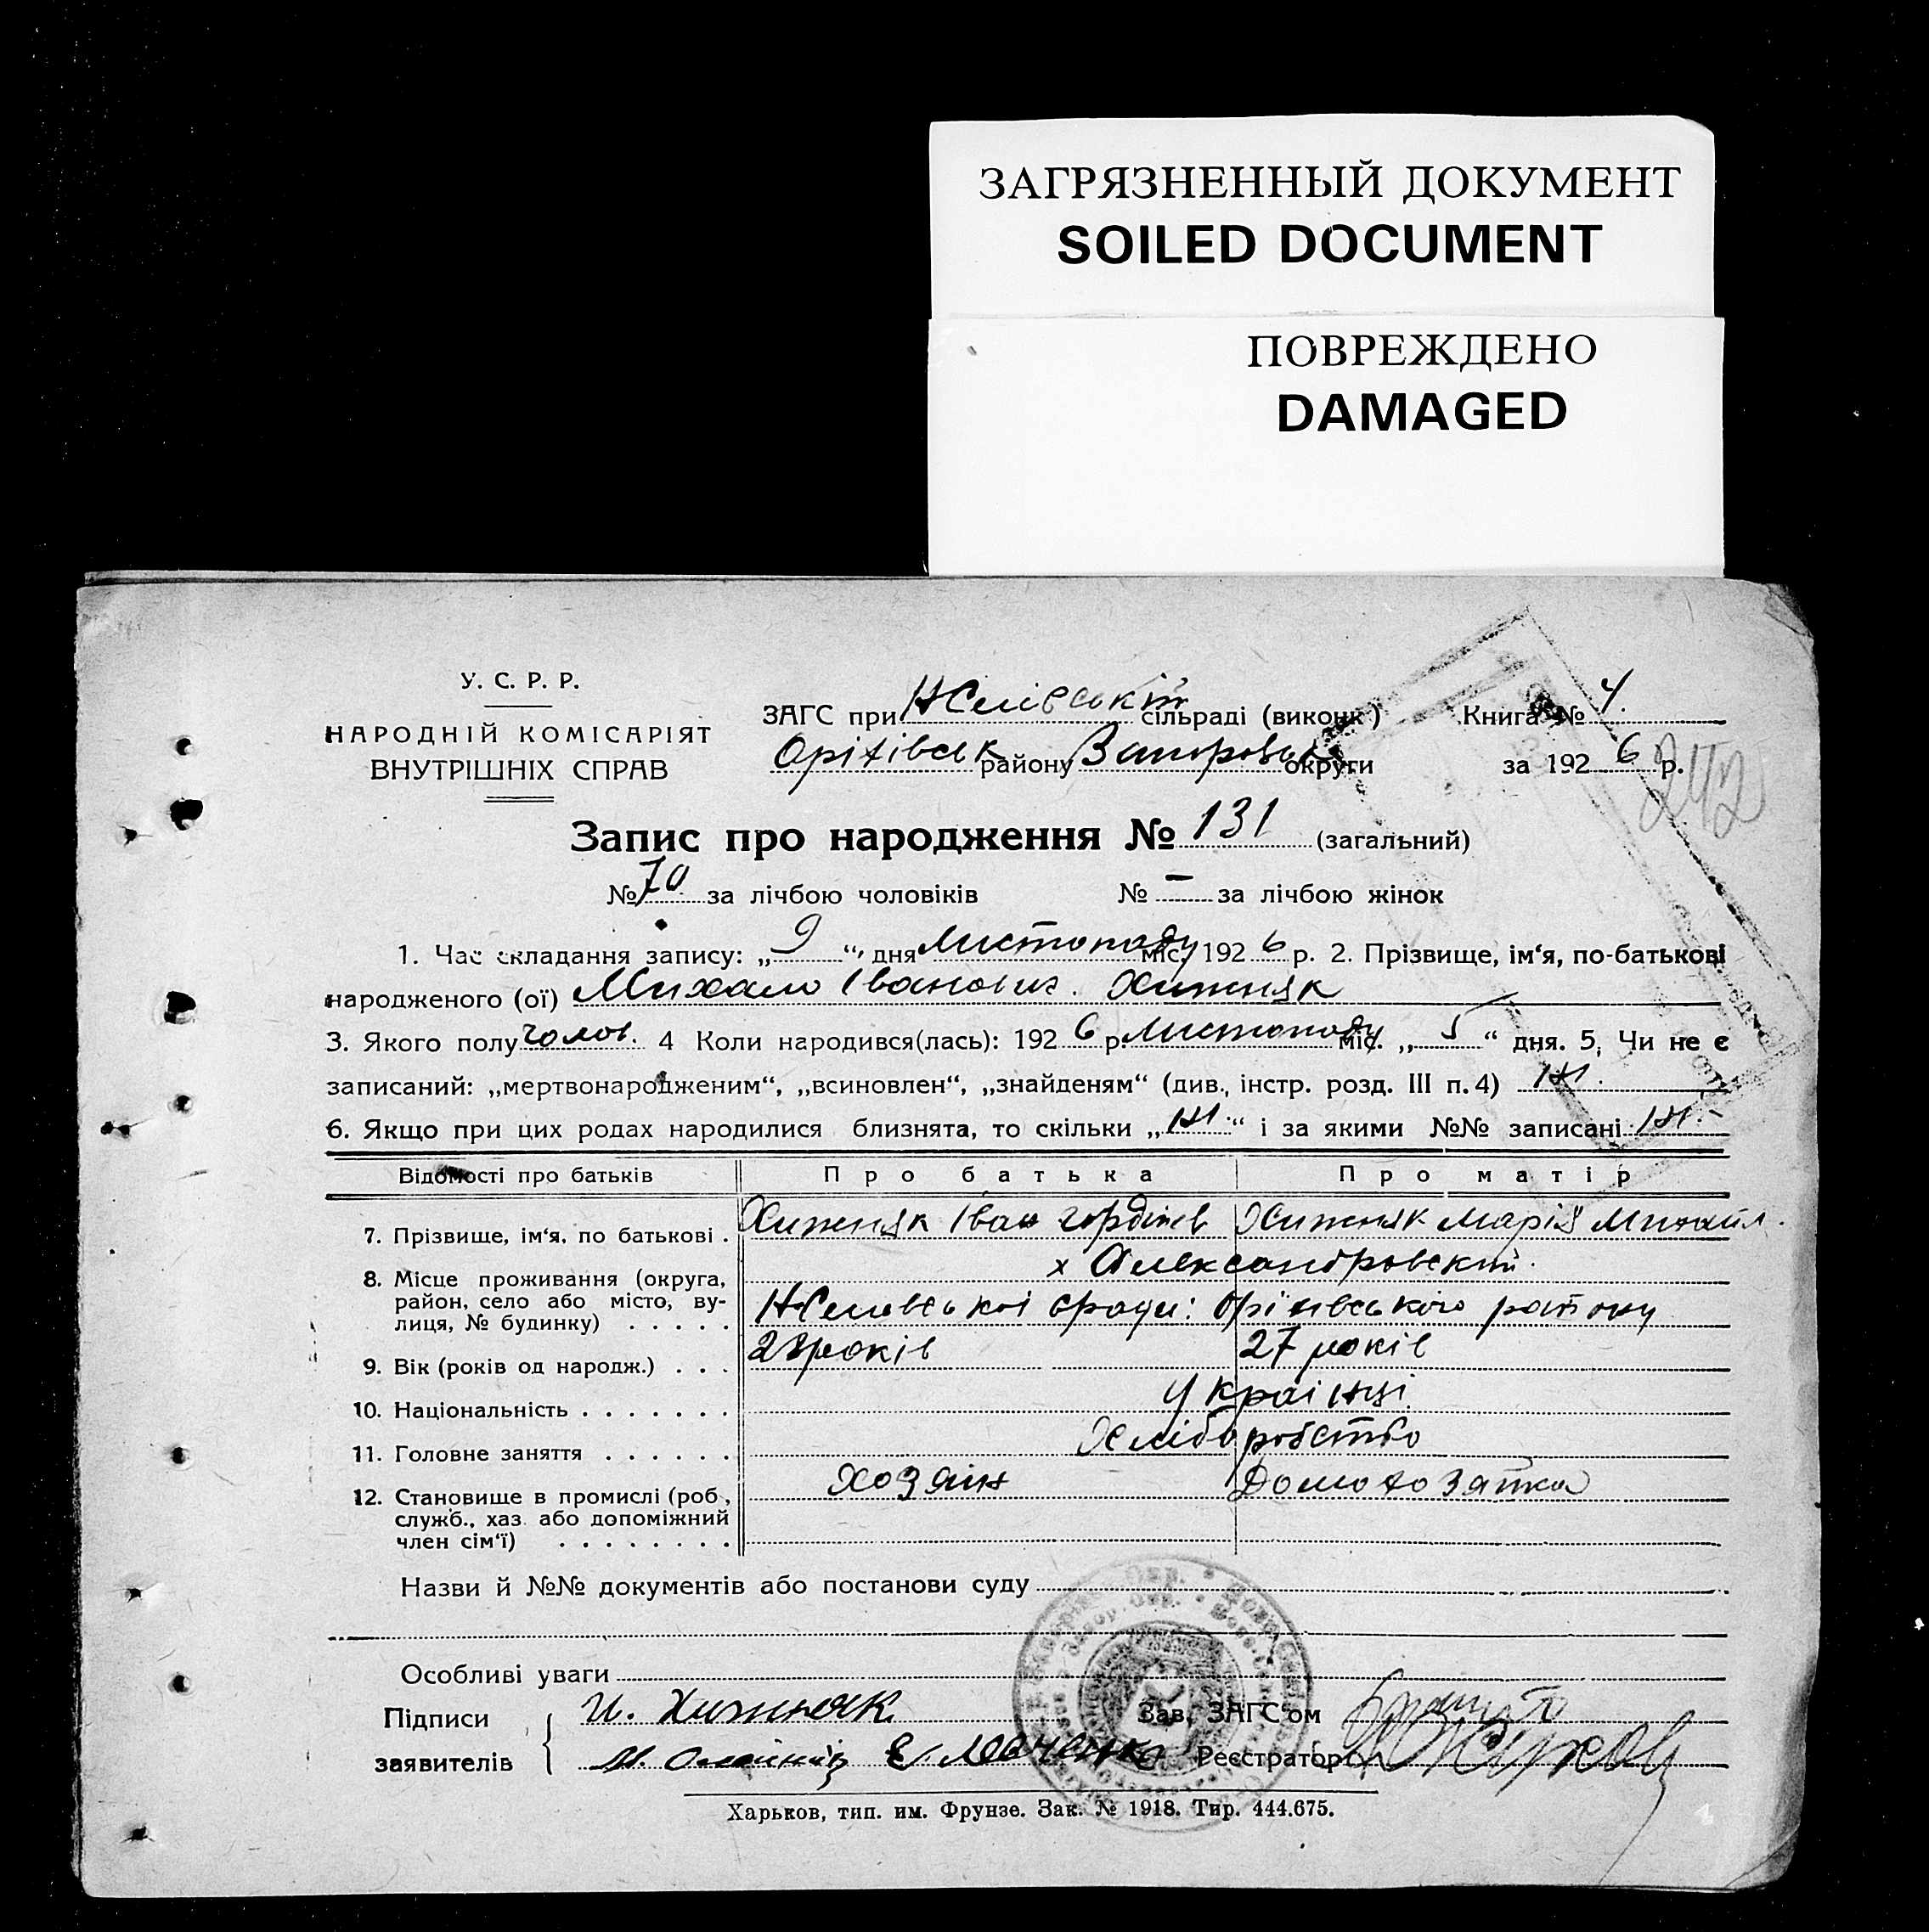 ЗАГРЯЗНЕННЫЙ ДОКУМЕНТ
SOILED DOCUMENT
ПОВРЕЖДЕНО
DAMAGED
У. С. Р. Р.
НАРОДНІЙ КОМІСАРІЯТ
ВНУТРІШНІХ СПРАВ
ЗАГС при сільраді (виконк) Книга № 4.
Оріхівськ району округи за 192 6 р.
242
Запис про народження № 131 (загальний)
№ 70 за лічбою чоловіків № – за лічбою жінок
1. Час складання запису: „ 9 “ дня Листопаду міс. 192 6 р. 2. Прізвище, ім‘я, по-батькові
народженого (ої) Михайло Іванович. Хижняк
3. Якого полу чолов. 4 Коли народився(лась): 192 6 р. Листопаду міс. „ 5 “ дня. 5, Чи не є
записаний: „мертвонародженим“, „всиновлен“, „знайденям“ (див., інстр. розд. III п. 4) ні.
6. Якщо при цих родах народилися близнята, то скільки „ ні “ і за якими №№ записані ні.-
Відомості про батьків Про батька Про матір
7. Прізвище, ім‘я, по батькові . Хижняк Іван Гордіїв Хижняк Марія Михайл.
8. Місце проживання (округа, х Александровский.
район, село або місто, ву-
лиця, № будинку) . . . . . Оріхівського району
9. Вік (років од народж.) . . . 28 років 27 років
10. Національність . . . . . . . Українці.
11. Головне заняття . . . . . . Хліборобство
12. Становище в промислі (роб., хозяїн Домохозяйка
служб., хаз. або допоміжний
член сім‘ї) . . . . . . . .
Назви й №№ документів або постанови суду
Особливі уваги
Підписи И. Хижняк. Зав. ЗАГС‘ом
заявителів Реєстратор
Харьков, тип. им. Фрунзе. Зак. № 1918. Тир. 444.675.